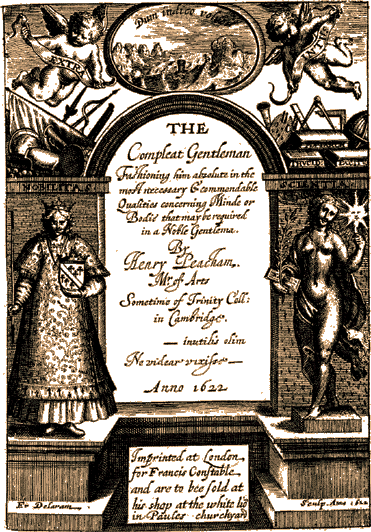 Dum indico
EXTRA
THE
Compleat Gentleman
Fashioning him absolute in the
most necessary & commendable
Qualities concerning Minde or
Bodie that may be required
in a Noble Gentlemã.
By
Henry Peacham,
Mr. of Arts
Sometime of Trinity Coll:
in Cambridge.
— inutilis olim
Ne videar vixisse —
Anno 1622
NOBILITAS
SCIENTIA
Imprinted at London
for Francis Constable
and are to bee sold at
his shop at the white liõ
in Paules churchyard
Fr Delaram
Sculp. Ano 1622